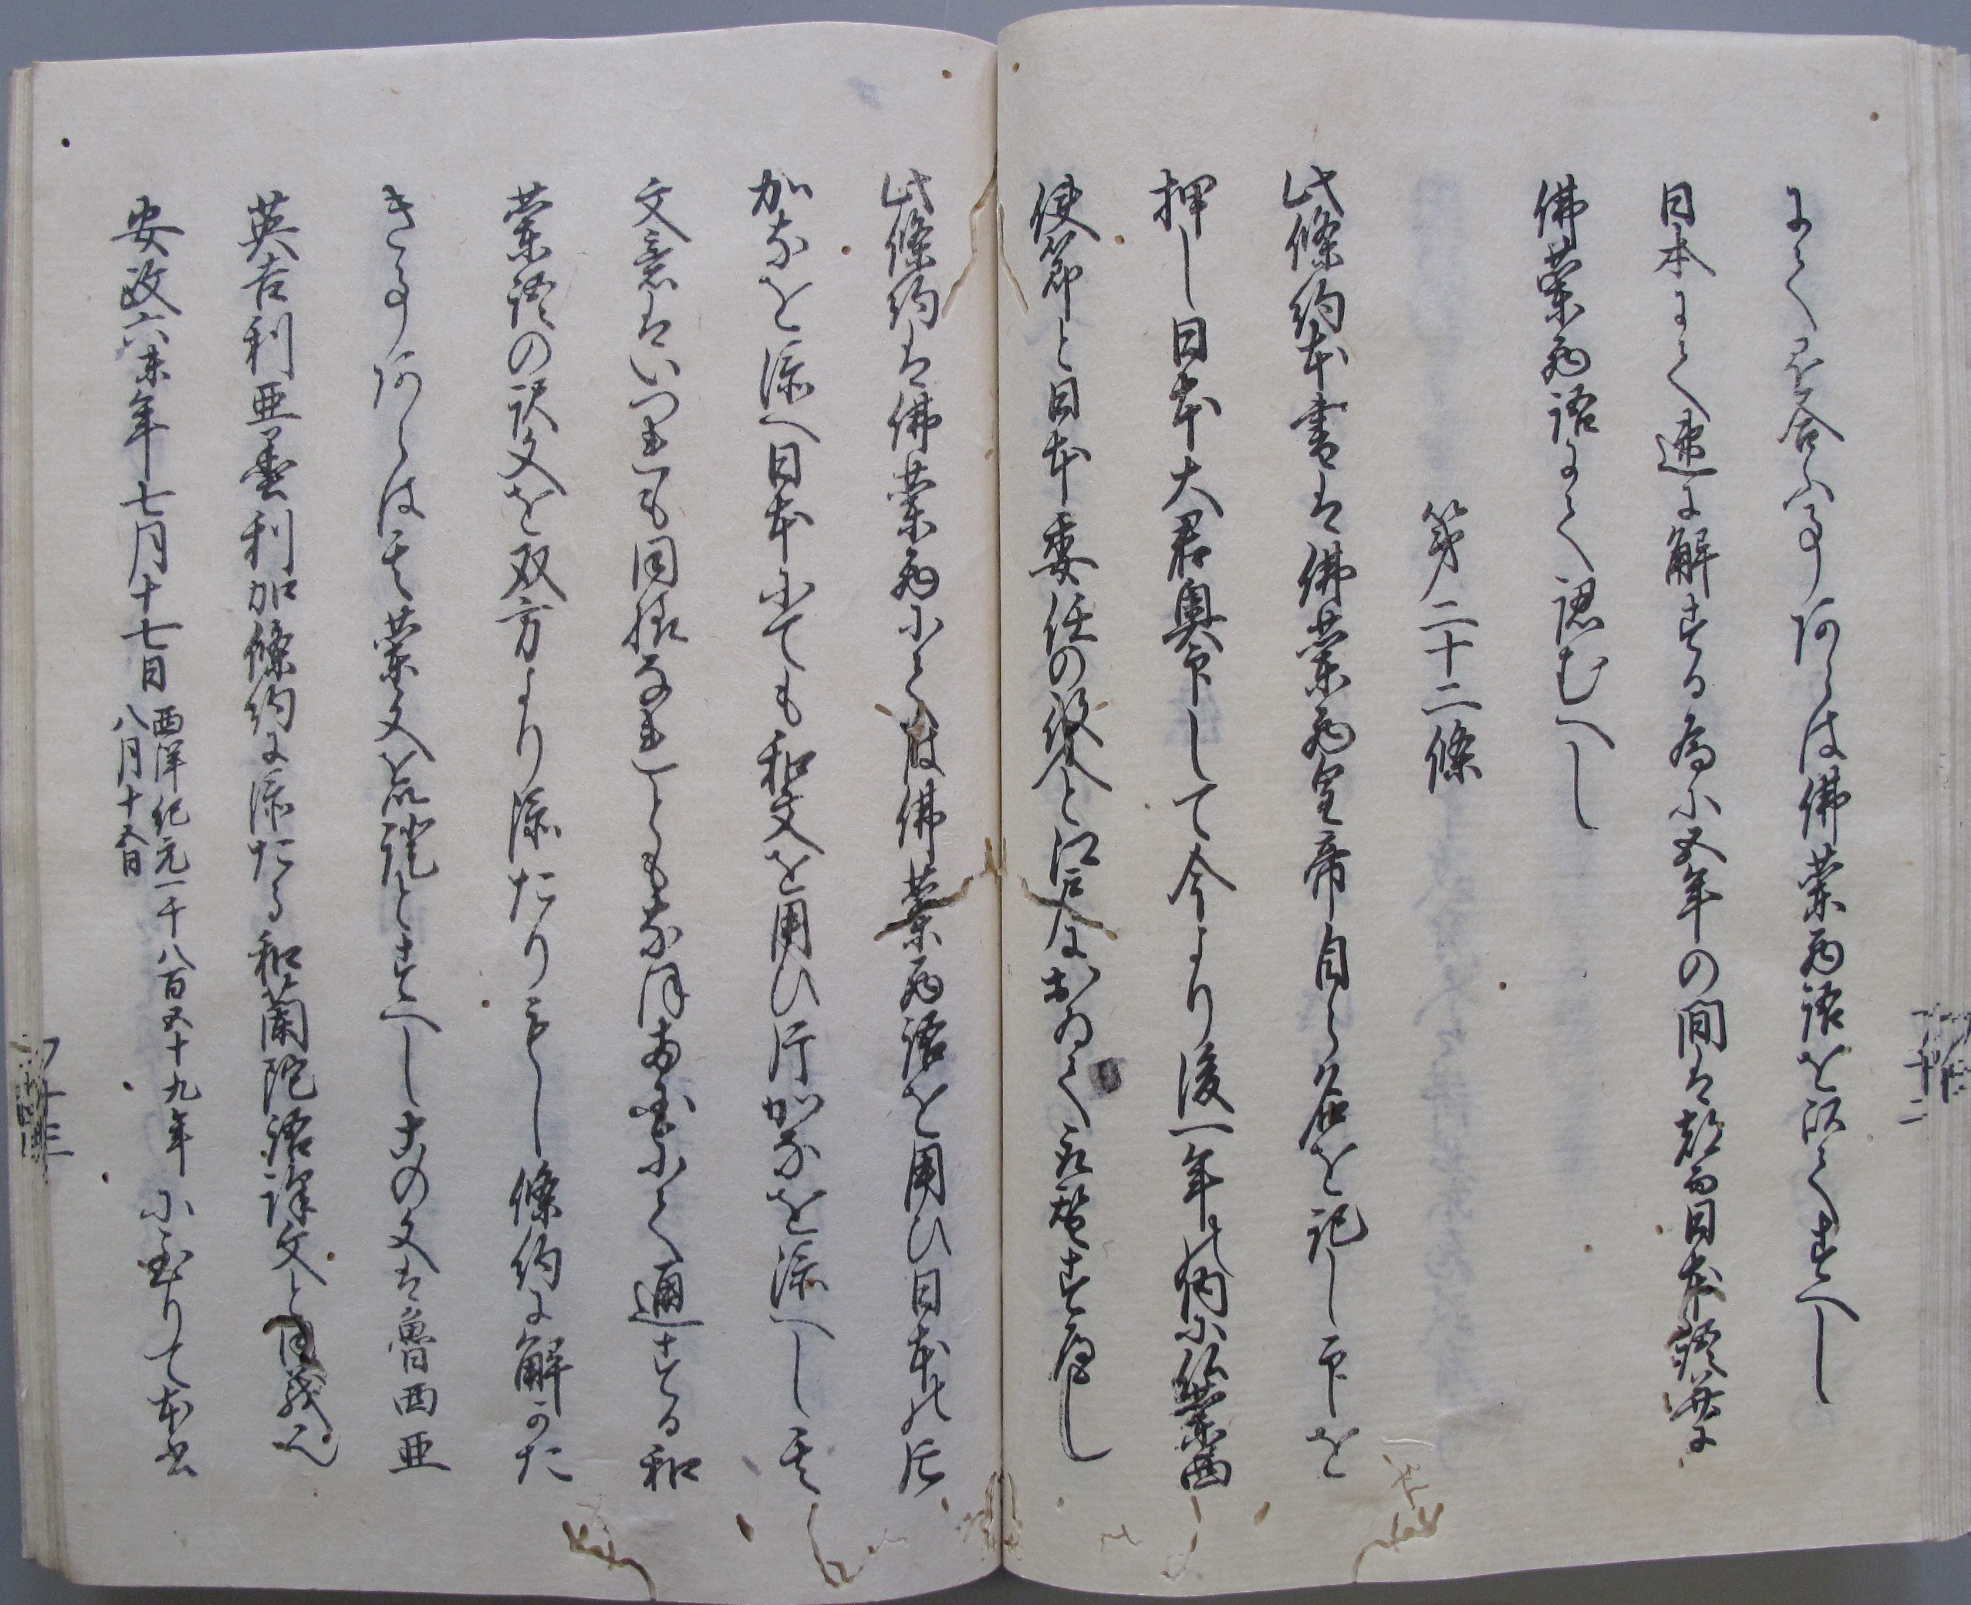 にて懸合ふ事あらは佛蘭西語を以てすへし
日本にて速に解する為に五年の間は都而日本語并に
佛蘭西語にて認むへし
第二十二條
此條約本書は佛蘭西皇帝自ら名を記し印を
押し日本大君奥印して今より後一年の内に佛蘭西
使節と日本委任の役人と江戸におゐて取替すへし
此條約は佛蘭西にては佛蘭西語を用ひ日本の片
加なを添へ日本にても和文を用ひ片加なを添へし其
文意はいつれも同様なれともなほ両国にて通する和
蘭語の訳文を双方より添たりもし條約に解かた
き事あらは其蘭文を証とすへし右の文は魯西亜
英吉利亜墨利加條約に添たる和蘭陀語譯文と同義也
安政六未年七月十七日 西洋紀元一千八百五十九年八月十五日 に至りて本書